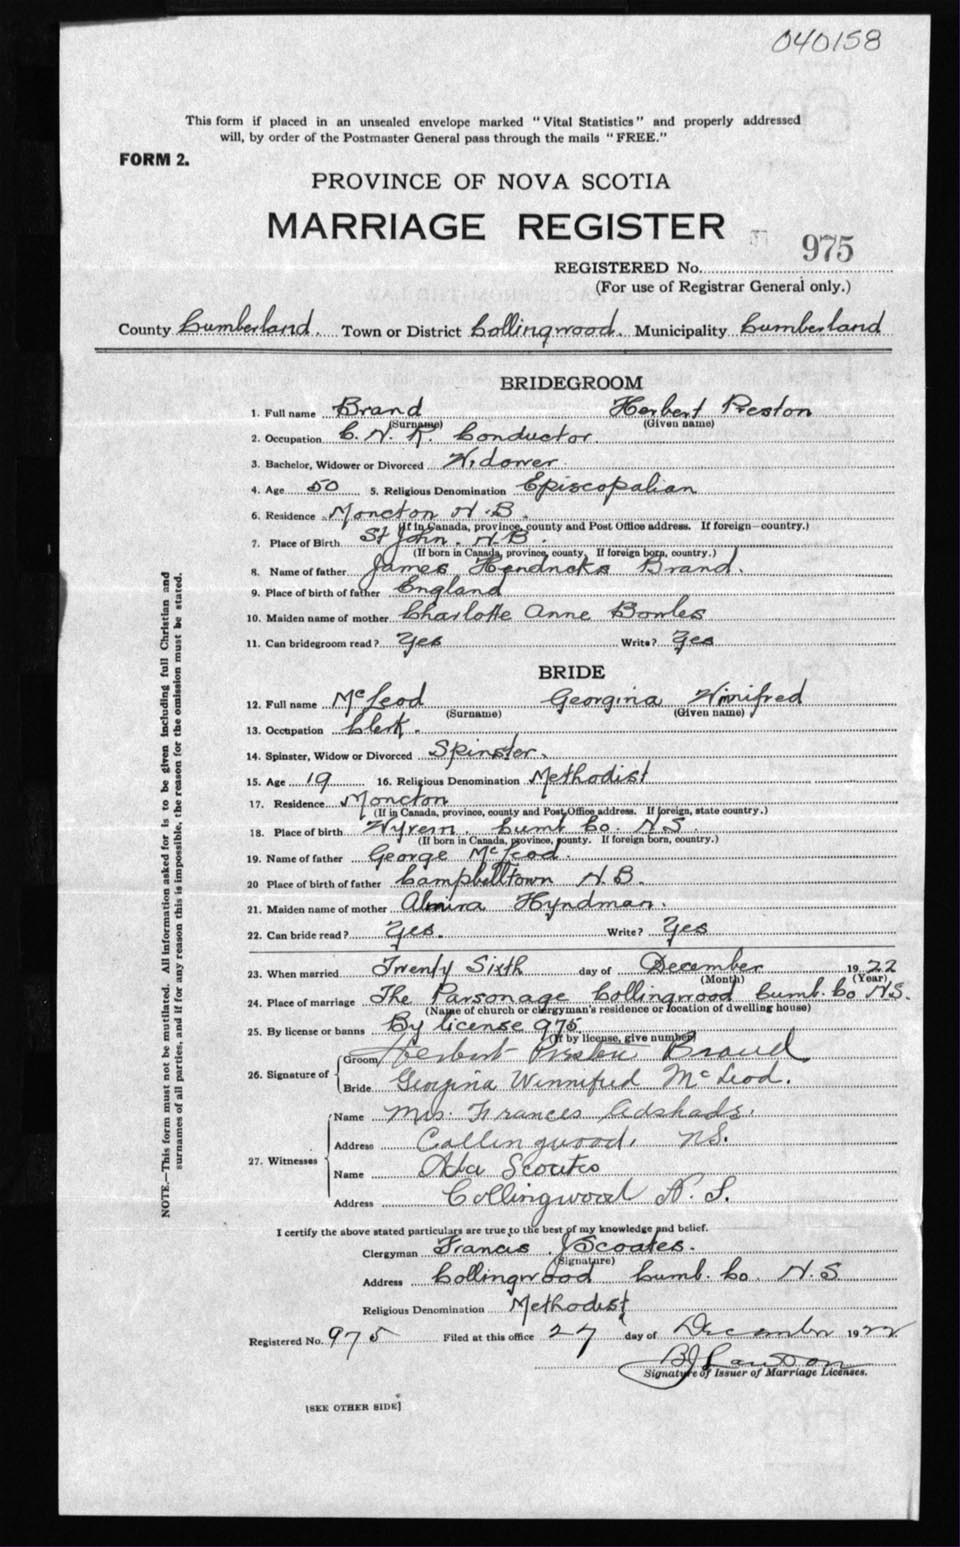 040158
This form if placed in an unsealed envelope marked "Vital Statistics" and properly addressed
will, by order of the Postmaster General pass through the mails "FREE."
FORM 2.
PROVINCE OF NOVA SCOTIA
MARRIAGE REGISTER
REGISTERED No. 975
(For use of Registrar General only.)
County Cumberland. Town or District Collingwood. Municipality Cumberland
BRIDEGROOM
1. Full name Brand Herbert Preston
(Surname) (Given name)
2. Occupation C. N. R. Conductor.
3. Bachelor, Widower or Divorced Widower.
4. Age 50 5. Religious Denomination Episcopalian
6. Residence Moncton N.B.
(If in Canada, province, county and Post Office address. If foreign—country.)
7. Place of Birth St John. N.B.
(If born in Canada, province, county. If foreign born, country.)
8. Name of father James Hendricks Brand.
9. Place of birth of father England
10. Maiden name of mother Charlotte Anne Bowles
11. Can bridegroom read? Yes Write? Yes
BRIDE
12. Full name McLeod Georgina Winnifred
(Surname) (Given name)
13. Occupation Clerk.
14. Spinster, Widow or Divorced Spinster.
15. Age 19 16. Religious Denomination Methodist
17. Residence Moncton
(If in Canada, province, county and Post Office address. If foreign, state country.)
18. Place of birth Cumb Co. N.S.
(If born in Canada, province, county. If foreign born, country.)
19. Name of father George McLeod.
20 Place of birth of father Campbelltown N.B.
21. Maiden name of mother Almira Hyndman.
22. Can bride read? Yes. Write? Yes
23. When married Twenty Sixth day of December 1922
(Month) (Year)
24. Place of marriage The Parsonage Collingwood Cumb. Co N.S.
(Name of church or clergyman's residence or location of dwelling house)
25. By license or banns By license 975
(If by license, give number)
26. Signature of
Groom Herbert Preston Brand
Bride Georgina Winnifred McLeod.
27. Witnesses
Name Mrs. Frances Adshads.
Address Collingwood, NS.
Name Ada Scoates
Address Collingwood N. S.
I certify the above stated particulars are true to the best of my knowledge and belief.
Clergyman Francis J Scoates.
(Signature)
Address Collingwood Cumb. Co. N.S.
Religious Denomination Methodist
Registered No. 975 Filed at this office 27 day of December 1922
Signature of Issuer of Marriage Licenses.
[SEE OTHER SIDE]
NOTE.—This form must not be mutilated. All information asked for is to be given including full Christian and
surnames of all parties, and if for any reason this is impossible, the reason for the omission must be stated.